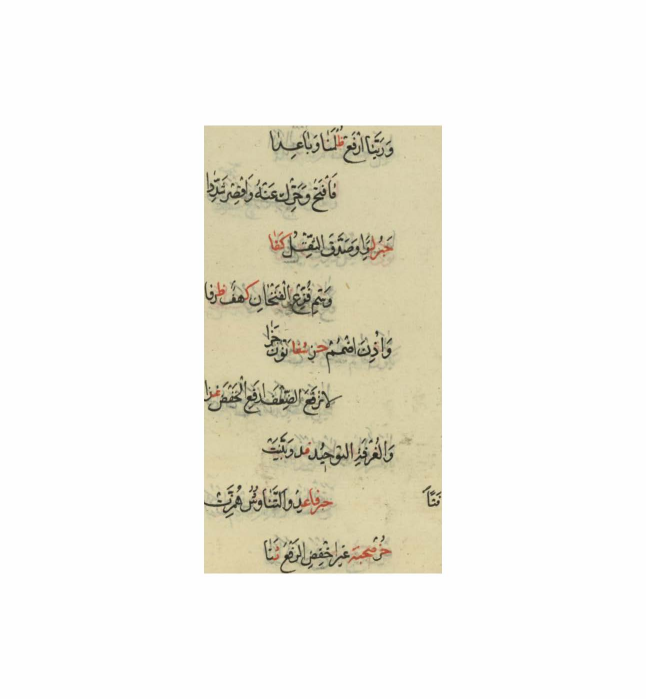 وَرَبَّنَا ارْفَعْ ظُلْمَنَا وَبَاعِدَا
فَافْتَحْ وَحَرِّكْ عَنْهُ وَاقْصِرْ شَدِّدَا
حَبْرٌ لِوًا وَصَدَّقَ الثِّقْلُ كَفَا
وَسَمِّ فُزِّعَ الْفَتْحَانِ كَهْفٌ ظرفا
وَأُذِنَ اضْمُمْ حز شفا نَوِّنْ جَزَا
لا ترفع الضِّعْفِ ارفع الْخَفْضَ غزا
وَالْغُرْفَةِ التوحيد فد وَبَيِّنَتْ
حز فا عد والتَّنَاوُشُ هُمِزَتْ
فَتًا
حُزْ صحبة غير اخْفِضِ الرَّفْعَ ثَنَا